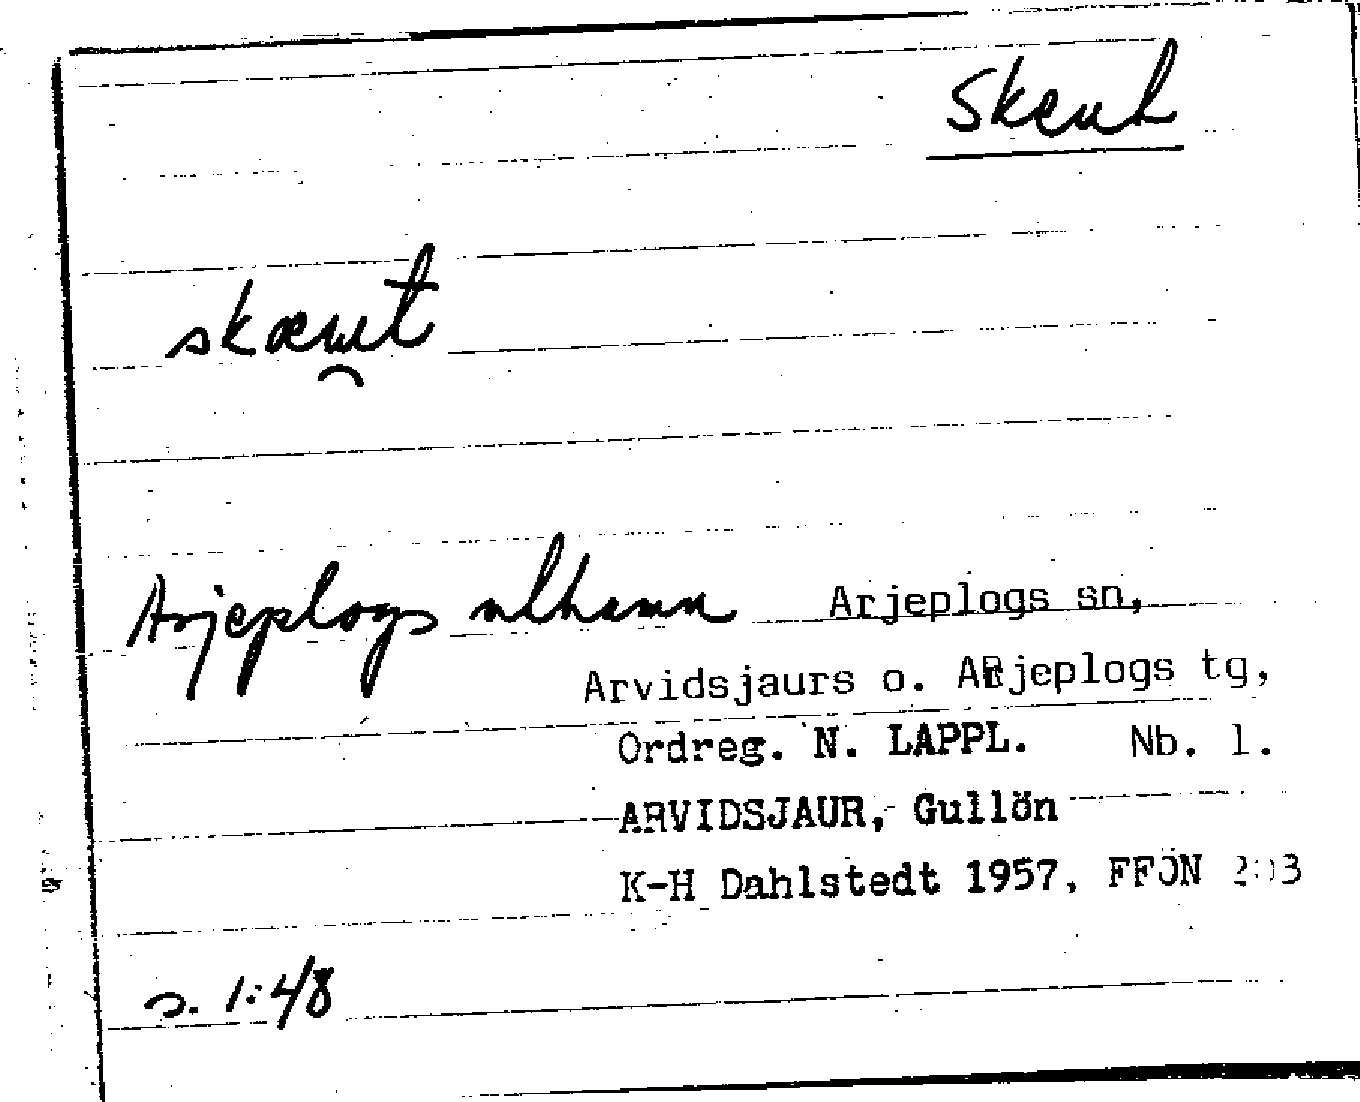 Skeut
skæu̯t
Arjeplogs Arjeplogs sn,
Arvidsjaurs o. ARjeplogs tg,
Ordreg. N. LAPPL. Nb. 1.
ARVIDSJAUR, Gullön
K-H Dahlstedt 1957, FFÖN 203
s. 1:4/8